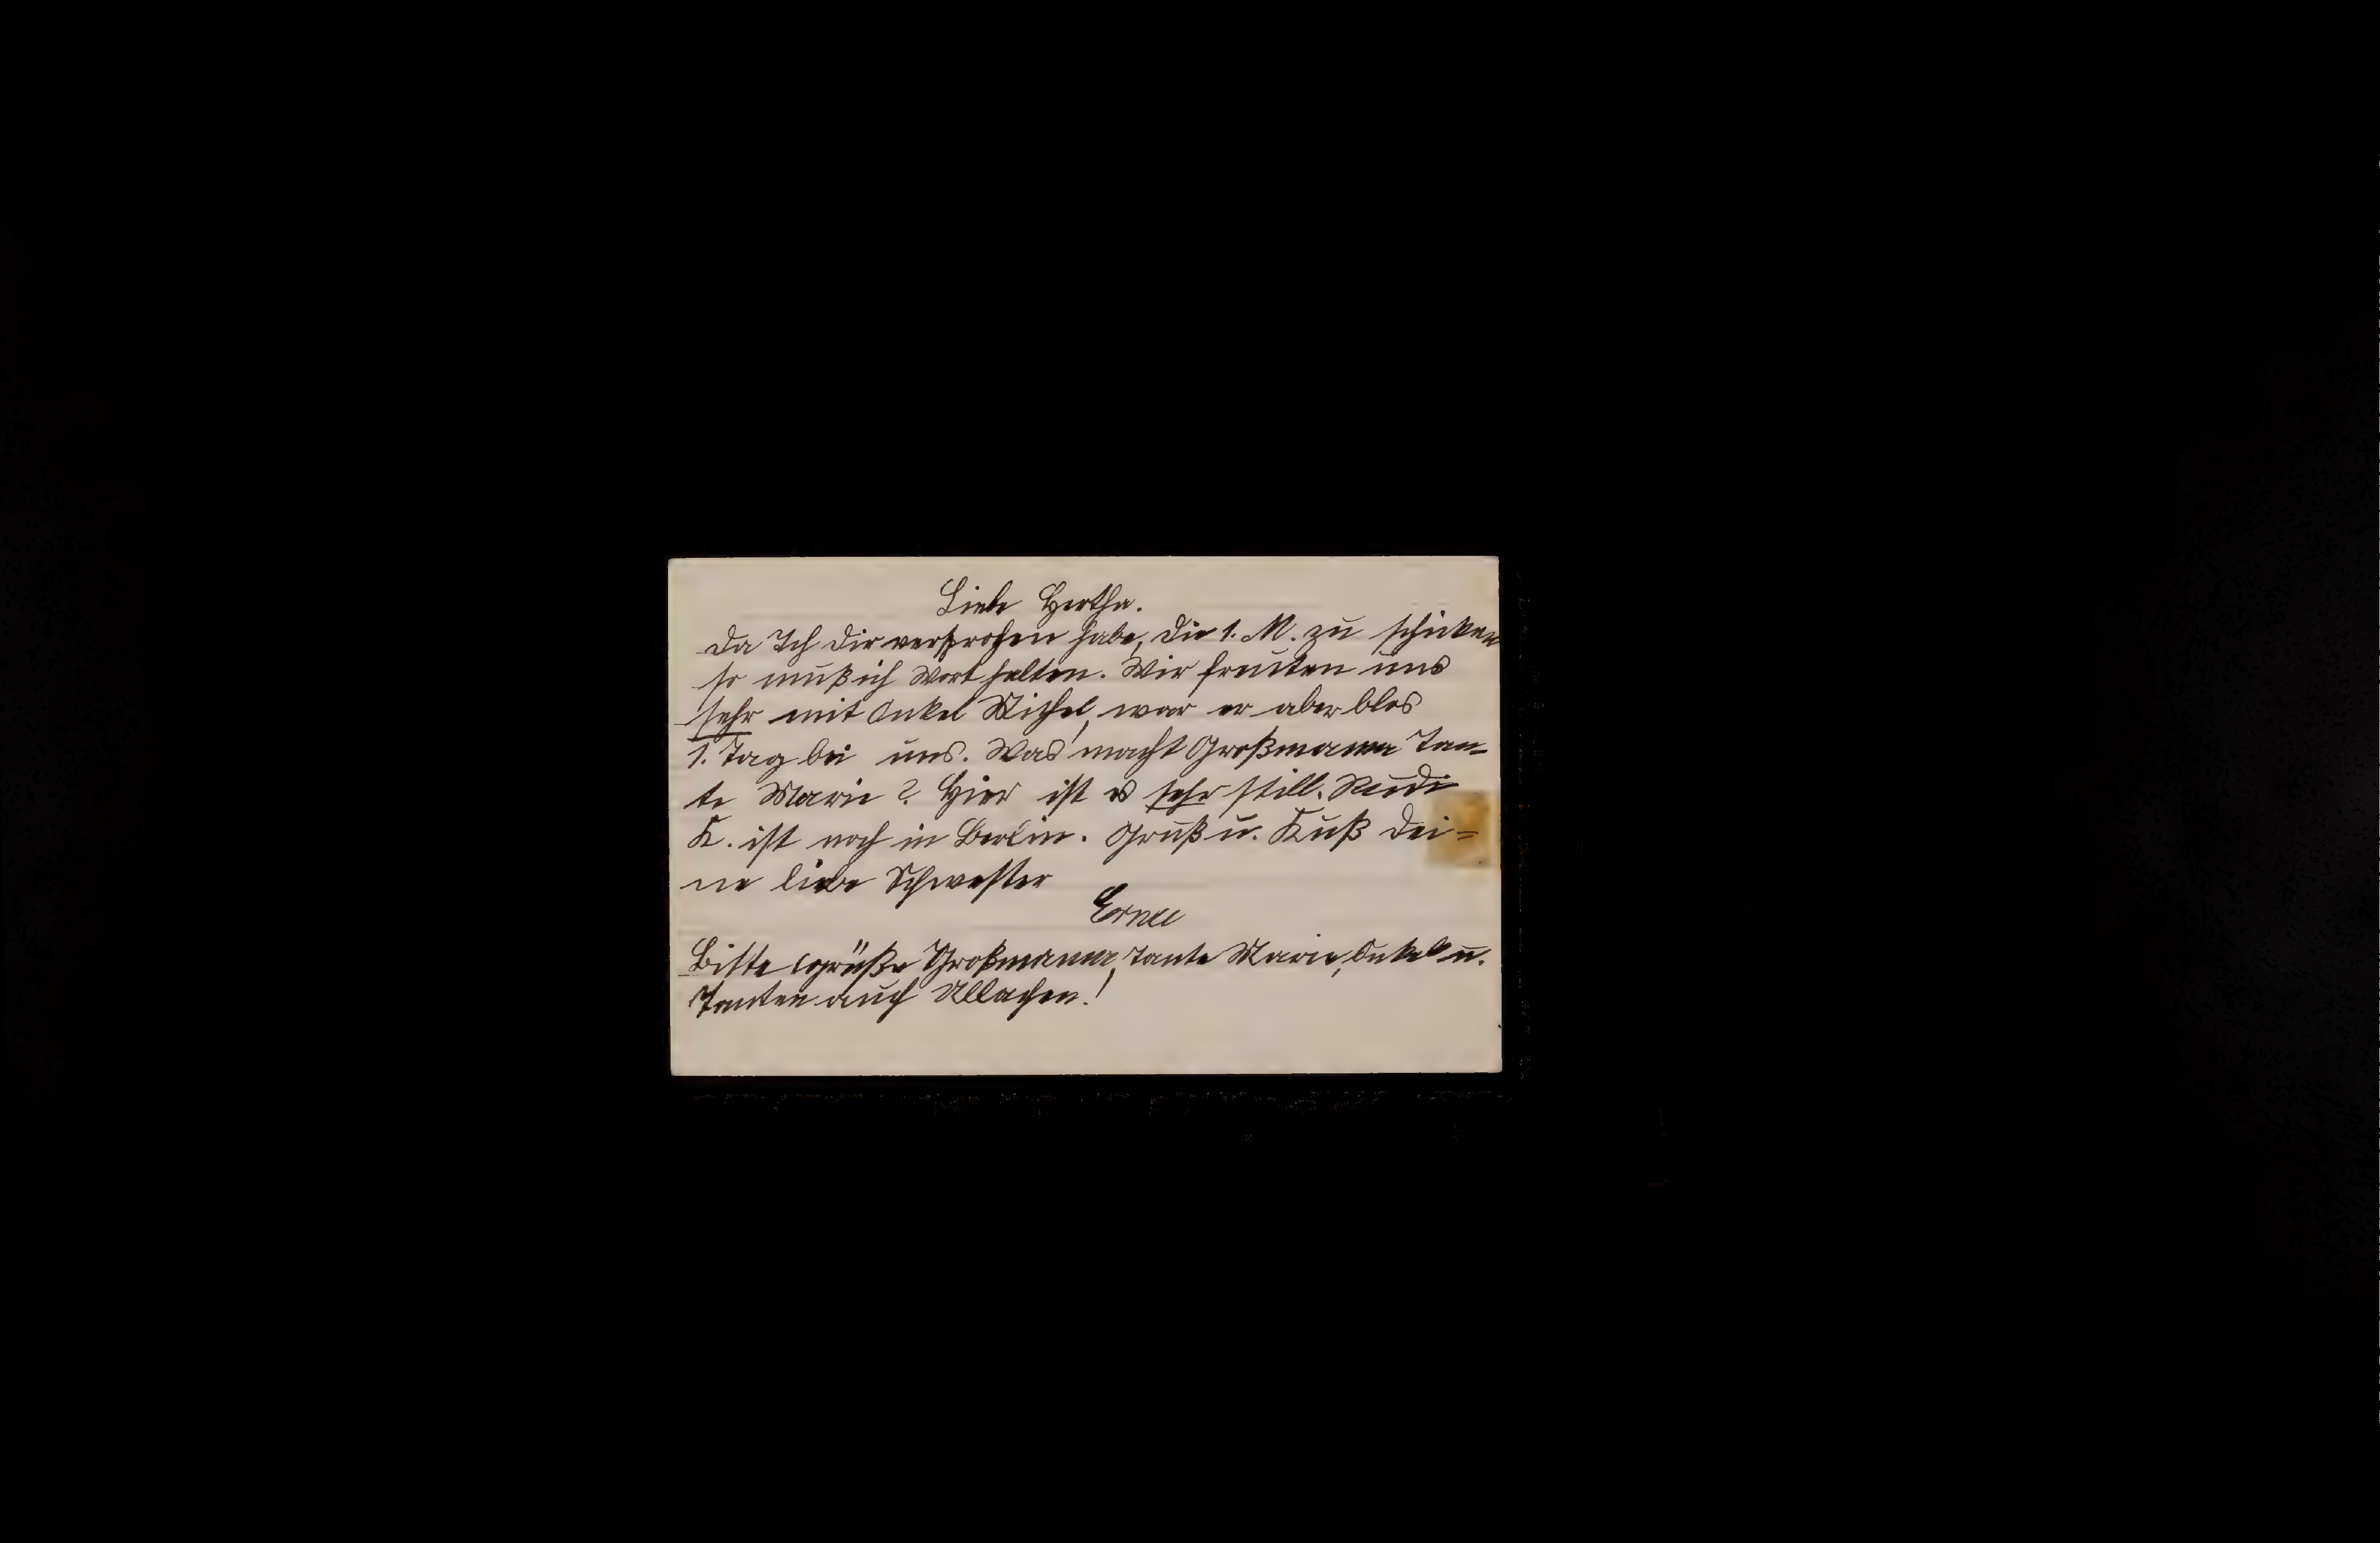 Liebe Hertha.
Da Ich Dir versprochen habe, Die 1. M. zu schicken
so muß ich Wort halten. Wir freuten uns
sehr mit Onkel Michel, war er aber blos
1. Tag bei uns. Was macht Großmama Tan-
te Marie? Hier ist es sehr still. Rudi
K. ist noch in Berlin. Gruß u. Kuß Dei=
ne liebe Schwester
Erna
Bitte Grüße Großmama, Tante Marie, Onkel u.
Tanten auch